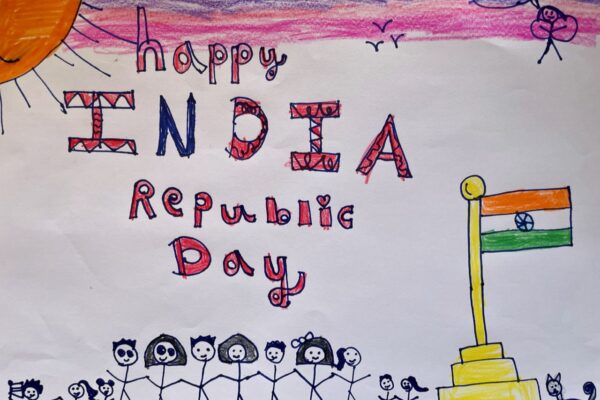 happy
INDIA
Republic
Day